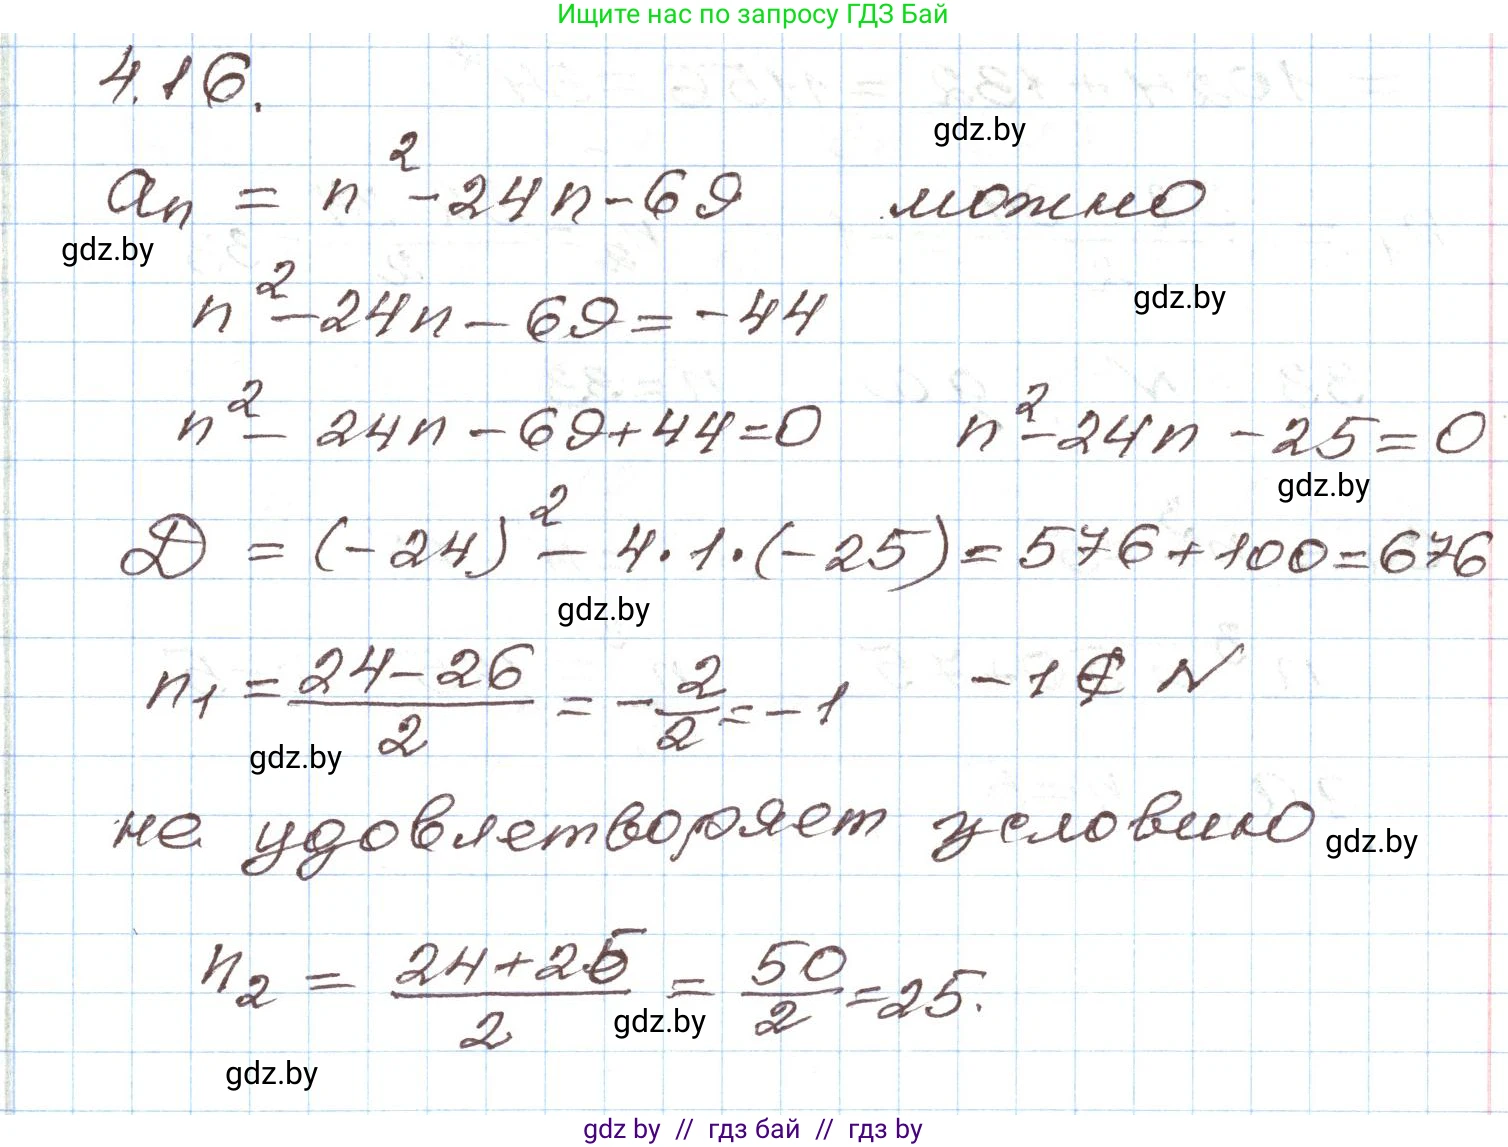 Ищите нас по запросу ГДЗ Бай
4.16.
gdz.by
aₙ = n² - 24n - 69 можно
gdz.by
n² - 24n - 69 = -44
gdz.by
n² - 24n - 69 + 44 = 0 n² - 24n - 25 = 0
gdz.by
D = (-24)² - 4·1·(-25) = 576 + 100 = 676
gdz.by
n₁ = (24 - 26)/2 = -2/2 = -1 -1 ∉ N
gdz.by
не удовлетворяет условию
gdz.by
n₂ = (24 + 26)/2 = 50/2 = 25.
gdz.by
gdz.by
gdz by // гдз бай // гдз by